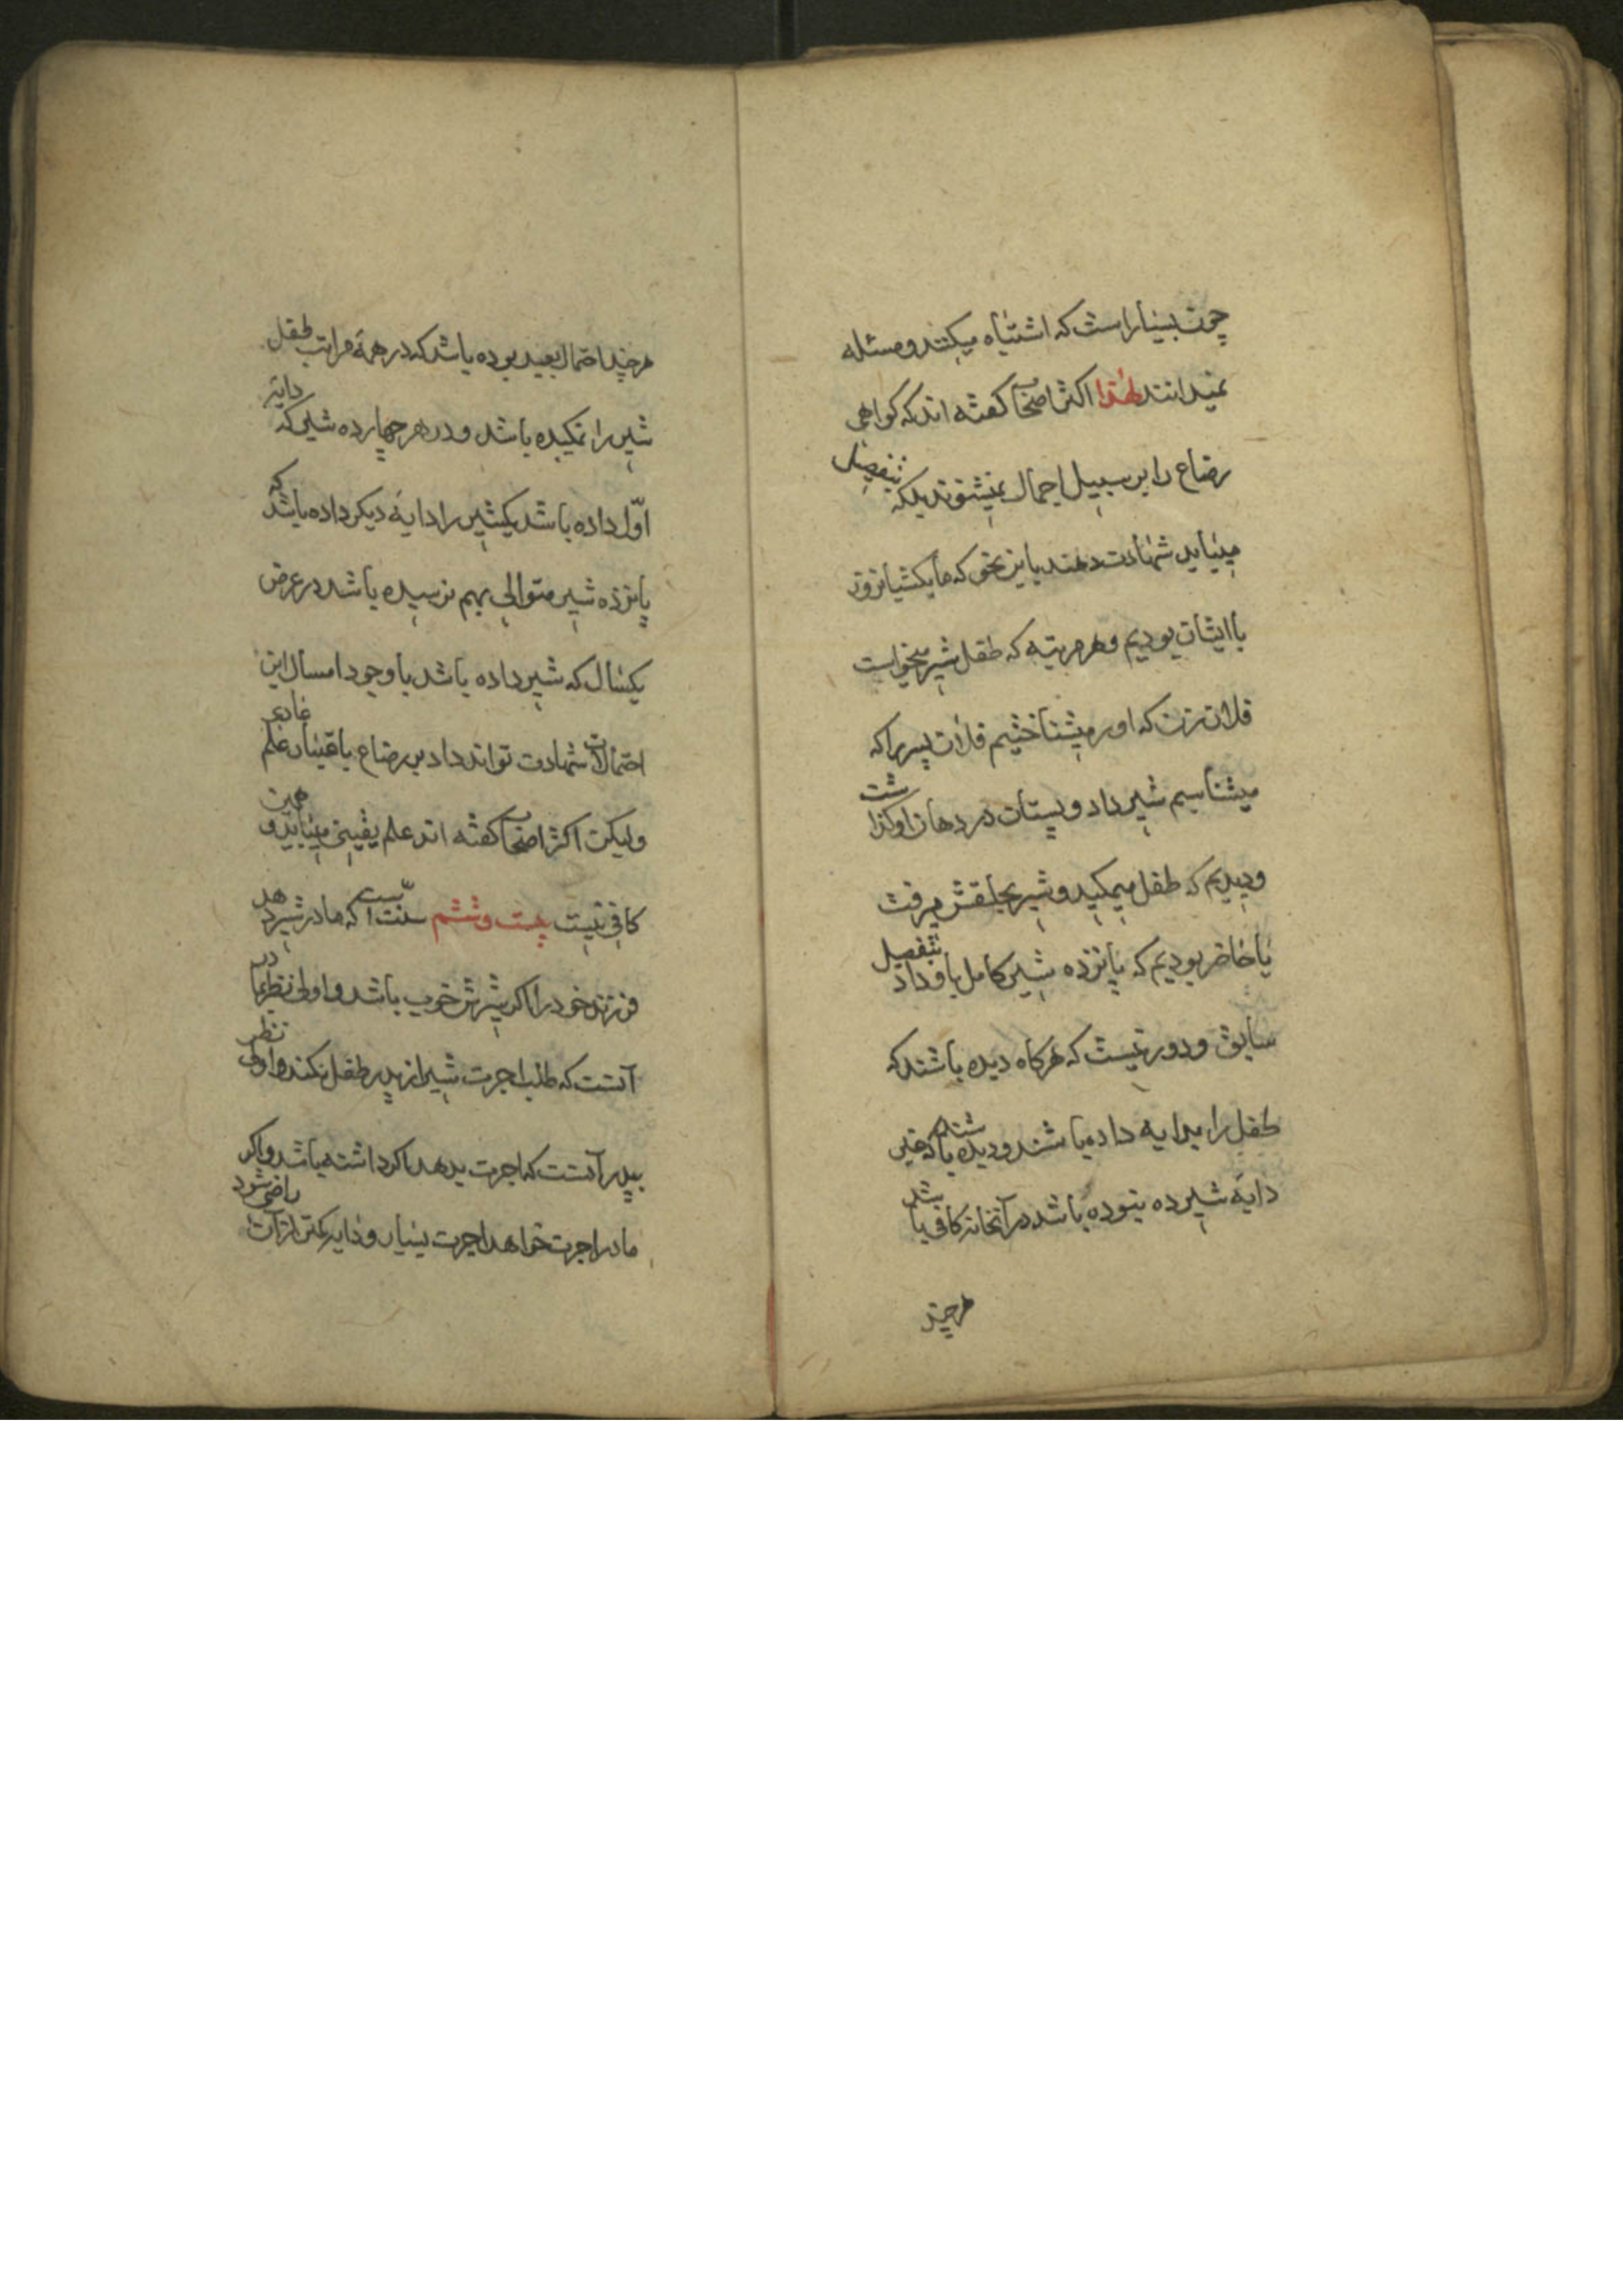 چون بسیار است که اشتباه میکنند و مسئله
نمیدانند لهذا اکثر اصحاب کفته اند که کواهی
رضاع را بر سبیل اجمال نمیشنوند بلکه بتفصیل
میباید شهادت دهند باین نحو که ما یکشبانروز
با ایشان بودیم و هر مرتبه که طفل شیر میخواست
فلان زن که او را میشناختیم فلان پسر را که
میشناسیم شیر داد و پستان در دهان او کذاشت
و دیدیم که طفل میمکید و شیر بحلقش میرفت
یا حاضر بودیم که پانزده شیر کامل باو داد بتفصیل
سابق و دور نیست که هرکاه دیده باشند که
طفل را بدایه داده باشند و دیده باشند که غیر
دایه شیرده نبوده باشد در آنخانه کافی باشد
هرچند
هرچند احتمال بعید بوده باشد که در همه مراتب طفل
شیر را نمکیده باشد و در هر چهارده شیر که دایه
اول داده باشد یکشیر را دایه دیکر داده باشد که
پانزده شیر متوالی بهم نرسیده باشد در عرض
یکسال که شیر داده باشد با وجود امسال این
احتمالات شهادت تواند داد بر رضاع باعتبار علم عادی
ولیکن اکثر اصحاب کفته اند علم یقینی میباید و همین
کافی نیست بیست و ششم سنت است که مادر شیر دهد
فرزند خود را اکر شیرش خوب باشد و اولی نظر بمادر
آنست که طلب اجرت شیر از پدر طفل نکند و اولی نظر
بپدر آنست که اجرت بدهد اکر داشته باشد و اکر
مادر اجرت خواهد اجرت بسیار و دایه بکمتر از آن راضی شود